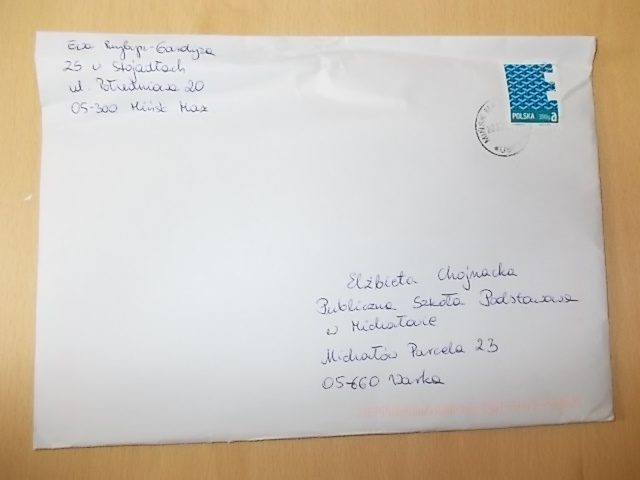 Ewa
ZS w Stojadłach
ul. Południowa 20
05-300 Mińsk Maz
POLSKA 350g a
MIŃSK
Elżbieta Chojnacka
Publiczna Szkoła Podstawowa
w Michałowie
Michałów Parcela 23
05-660 Warka